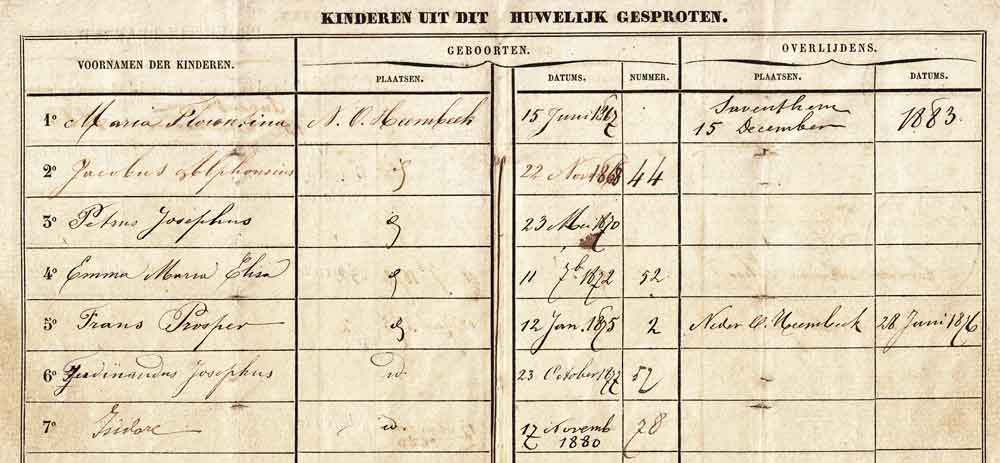 KINDEREN UIT DIT HUWELIJK GESPROTEN.
VOORNAMEN DER KINDEREN. GEBOORTEN. OVERLIJDENS.
PLAATSEN. DATUMS. NUMMER. PLAATSEN. DATUMS.
1° Maria Florentina N. O. Heembeek 15 Juni 1867 Saventhem 15 December 1883.
2° Jacobus Alphonsius 22 Nov 1868 44
3° Petrus Josephus 23 Mei 1870
4° Emma Maria Elisa 11 7b 1872 52
5° Frans Prosper 12 Jan. 1875 2 Neder O. Heembeek 28 Juni 1876
6° Ferdinandus Josephus id. 23 October 1877 57
7° Isidore id. 17 Novemb 1880 78